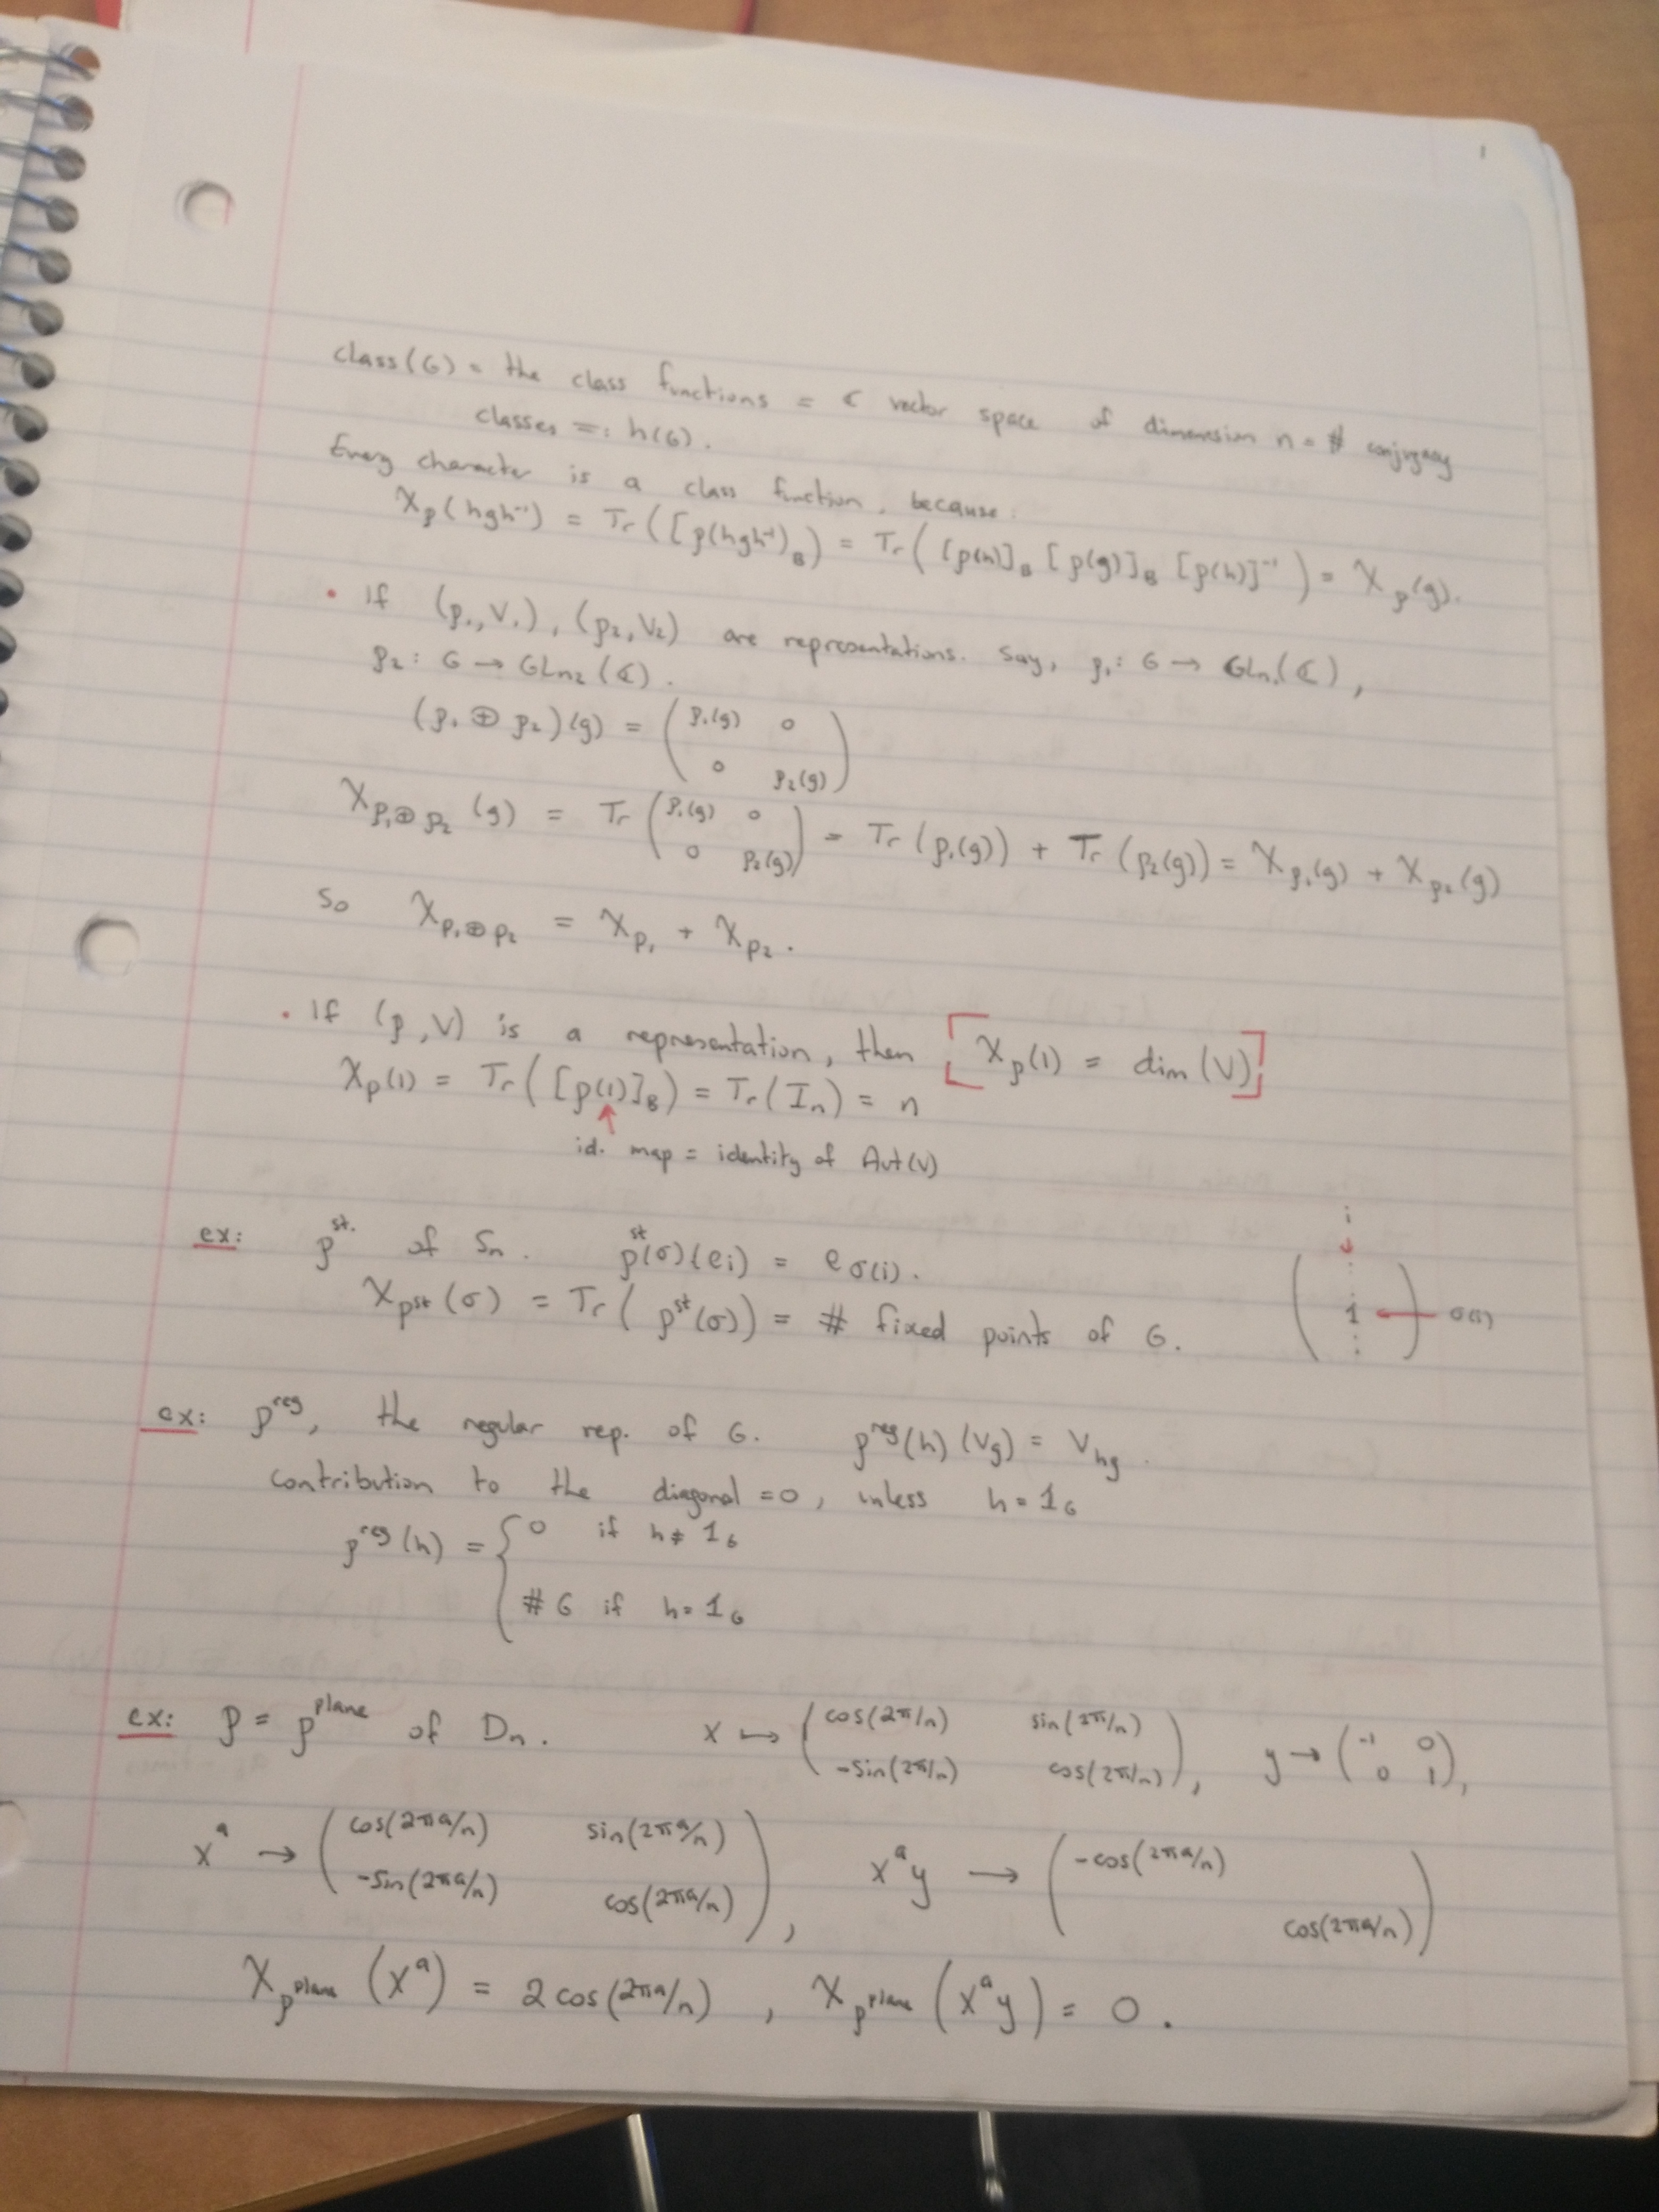 class(G) = the class functions = ℂ vector space of dimension n = # conjugacy
classes =: h(G).
Every character is a class function, because:
χ_ρ(hgh⁻¹) = Tr([ρ(hgh⁻¹)_B) = Tr([ρ(h)]_B [ρ(g)]_B [ρ(h)]⁻¹) = χ_ρ(g).
• If (ρ₁,V₁), (ρ₂,V₂) are representations. Say, ρ₁: G → GL_n₁(ℂ),
ρ₂: G → GL_n₂(ℂ).
(ρ₁ ⊕ ρ₂)(g) = ( ρ₁(g) 0
0 ρ₂(g) )
χ_ρ₁⊕ρ₂ (g) = Tr ( ρ₁(g) 0
0 ρ₂(g) ) = Tr(ρ₁(g)) + Tr(ρ₂(g)) = χ_ρ₁(g) + χ_ρ₂(g)
So χ_ρ₁⊕ρ₂ = χ_ρ₁ + χ_ρ₂.
• If (ρ,V) is a representation, then [χ_ρ(1) = dim(V)]
χ_ρ(1) = Tr([ρ(1)]_B) = Tr(I_n) = n
↑
id. map = identity of Aut(V)
ex: ρ^st. of S_n. ρ^st(σ)(e_i) = e_σ(i).
χ_ρ^st(σ) = Tr(ρ^st(σ)) = # fixed points of G.
i
↓
( 1 ) ← σ(i)
ex: ρ^reg, the regular rep. of G. ρ^reg(h)(V_g) = V_hg.
contribution to the diagonal = 0, unless h = 1_G
ρ^reg(h) = { 0 if h ≠ 1_G
#G if h = 1_G
ex: ρ = ρ^plane of D_n. x ↦ ( cos(2π/n) sin(2π/n)
-sin(2π/n) cos(2π/n) ), y → ( -1 0
0 1 ),
x^a → ( cos(2πa/n) sin(2πa/n)
-sin(2πa/n) cos(2πa/n) ), x^a y → ( -cos(2πa/n)
cos(2πa/n) )
χ_ρ^plane (x^a) = 2cos(2πa/n), χ_ρ^plane (x^a y) = 0.